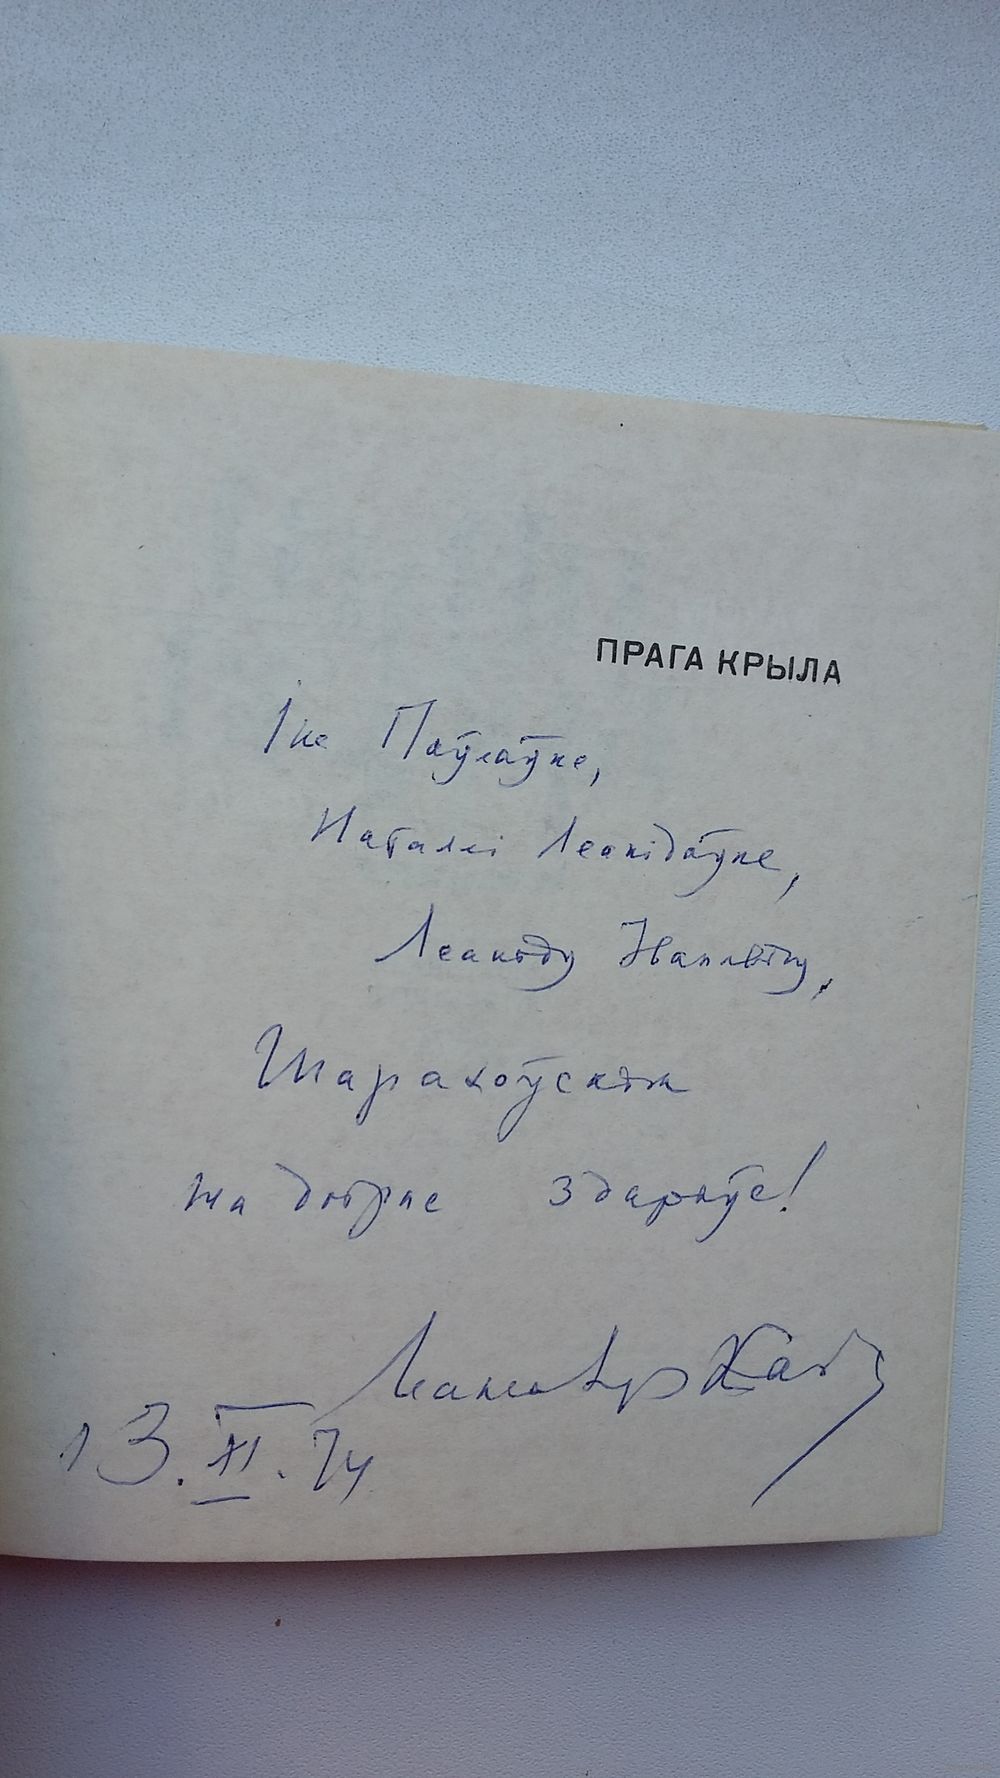 ПРАГА КРЫЛА
Іне Паўлаўне,
Наталлі Леанідаўне,
Леаніду Іванавічу,
Шарахоўскім
на добрае здароўе!
13.XI.74